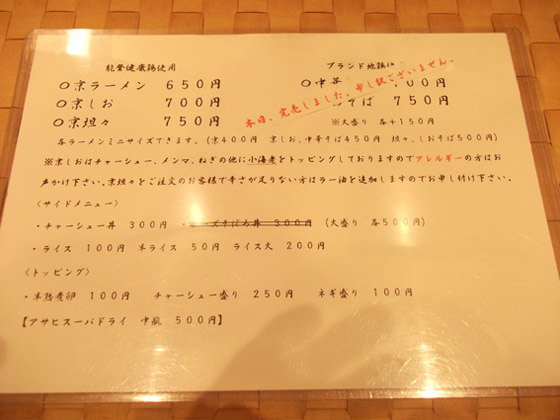 能登健康鶏使用
○京ラーメン 650円
○京しお 700円
○京坦々 750円
ブランド地鶏
○中華 00円
そば 750円
本日、完売しました。申し訳ございません。
※大盛り 各+150円
各ラーメンミニサイズできます。(京400円 京しお、中華そば450円 坦々、しおそば500円)
※京しおはチャーシュー、メンマ、ねぎの他に小海老をトッピングしておりますのでアレルギーの方はお
声かけ下さい。京坦々をご注文のお客様で辛さが足りない方はラー油を追加しますのでお申し付け下さい。
〈サイドメニュー〉
・チャーシュー丼 300円 ・ そぼろ丼 300円 (大盛り 各500円)
・ライス 100円 半ライス 50円 ライス大 200円
〈トッピング〉
・半熟煮卵 100円 チャーシュー盛り 250円 ネギ盛り 100円
【アサヒスーパドライ 中瓶 500円】